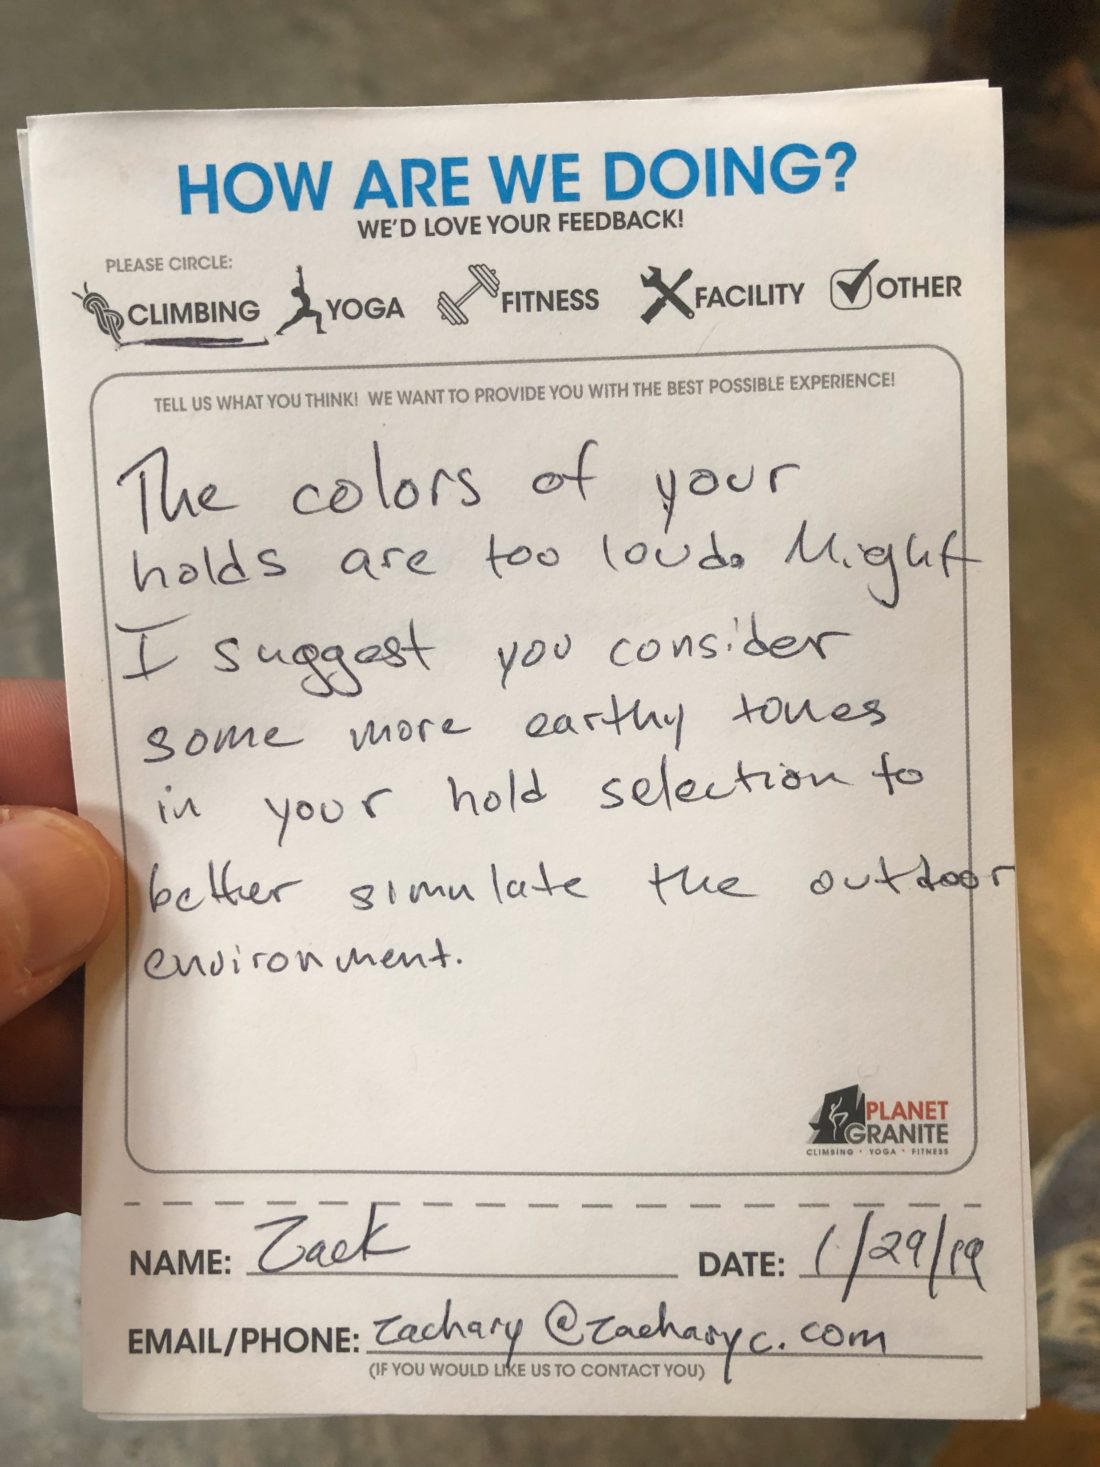 HOW ARE WE DOING?
WE'D LOVE YOUR FEEDBACK!
PLEASE CIRCLE:
CLIMBING YOGA FITNESS FACILITY OTHER
TELL US WHAT YOU THINK! WE WANT TO PROVIDE YOU WITH THE BEST POSSIBLE EXPERIENCE!
The colors of your
holds are too loud. Might
I suggest you consider
some more earthy tones
in your hold selection to
better simulate the outdoor
environment.
PLANET
GRANITE
CLIMBING • YOGA • FITNESS
NAME: Zack DATE: 1/29/19
EMAIL/PHONE: zachary@zacharyc.com
(IF YOU WOULD LIKE US TO CONTACT YOU)